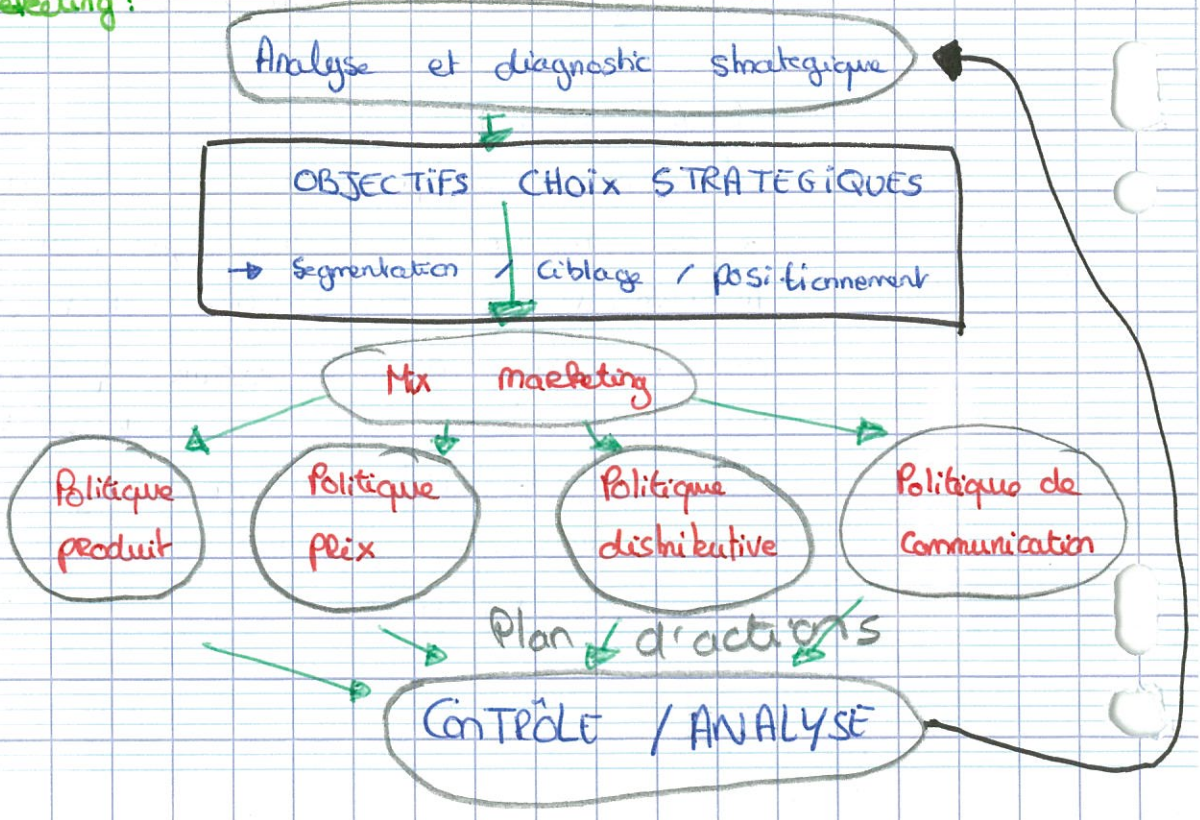 Analyse et diagnostic strategique
OBJECTiFS CHOix STRATEGiQUES
→ Segmentation / Ciblage / positionnement
Mix marketing
Politique
produit
Politique
prix
Politique
distributive
Politique de
Communication
Plan d'actions
ConTRÔLE / ANALYSE